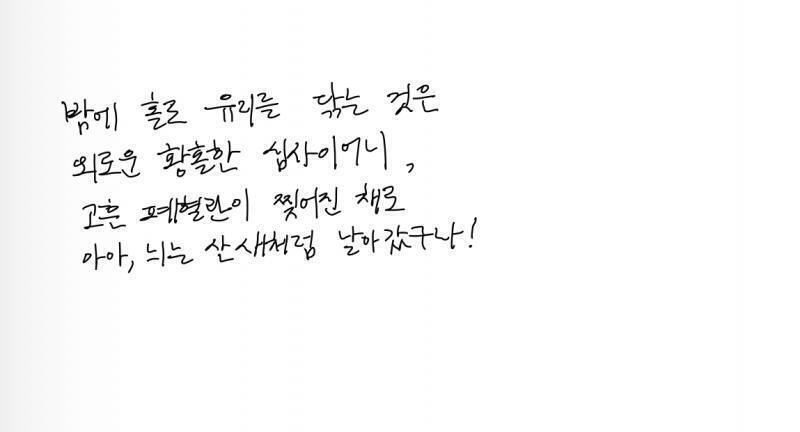 밤에 홀로 유리를 닦는 것은
외로운 황홀한 심사이어니,
고흔 폐혈관이 찢어진 채로
아아, 늬는 산새처럼 날아갔구나!